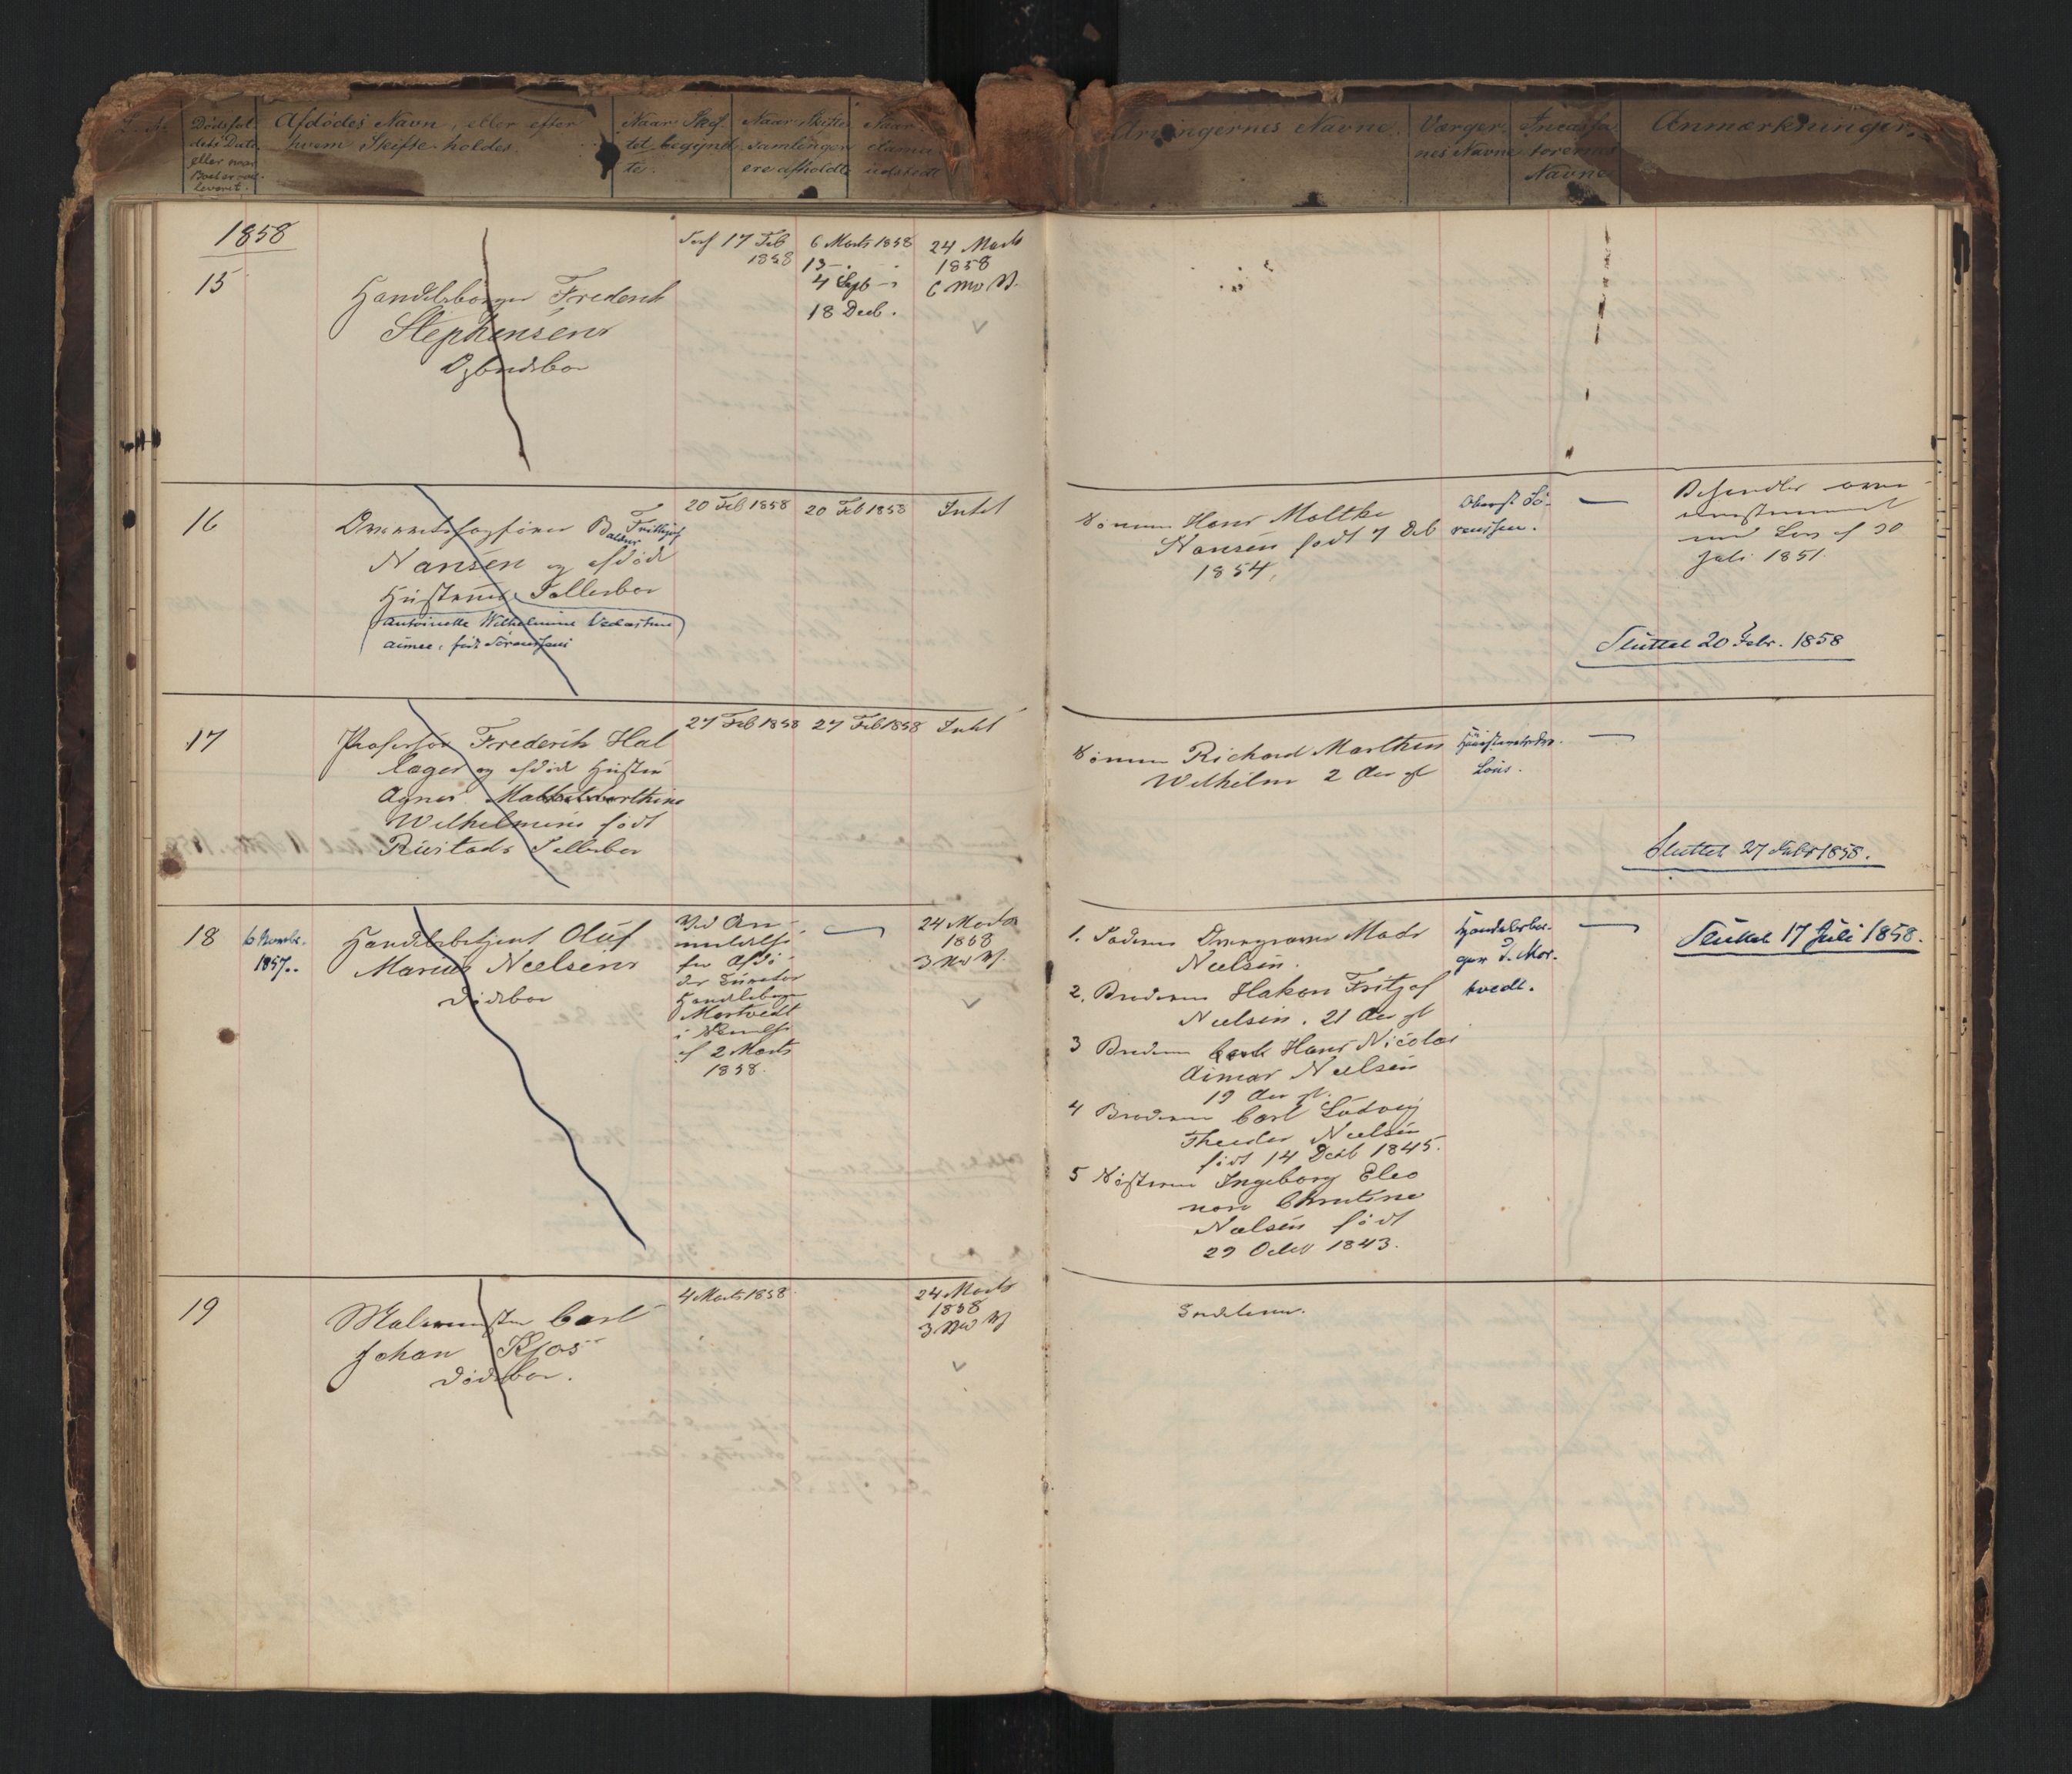 Dødsfal-
dets Dato
eller naar
Boet er over-
leveret.
Afdødes Navn, eller efter
hvem Skifte holdes.
Naar Skif-
tet begynd-
te.
Naar Skifte-
samlinger
ere afholdte
Naar
Proclama
udstedt
Arvingernes Navne.
Værger-
nes Navne
Incassa-
torernes
Navne
Anmærkninger.
1858
15
Handelsborger Frederik
Stephensens
Opbudsbo
17 Feb
1858
6 Marts 1858
13 -
4 Sept -
18 Decb.
24 Marts
1858
6 Mds V.
16
Overretssagfører Baldur Fridtjof
Nansen og afdøde
Hustrues Fællesbo
(Antoinette Wilhelmine
Aimee, født Sørenssen)
20 Feb 1858
20 Feb 1858
Intet
Sønnen Hans Moltke
Nansen født 7 Feb
1854,
Oberst Sø-
renssen.
Behandles overe-
ensstemmende
med Lov af 30
Juli 1851.
Sluttet 20 Febr. 1858
17
Professor Frederik Hal
lager og afdøde Hustru
Agnes Marthine
Wilhelmine født
Rustads Fællesbo
27 Feb 1858
27 Feb 1858
Intet
Sønnen Richard Marthin
Wilhelm 2 Aar gl
Løus.
Sluttet 27 Febr 1858.
18
6 Novbr.
1857.
Handelsbetjent Oluf
Marius Neelsens
Dødsbo
Ved An-
meldelse
fra Afdø-
des Curator
Handelsborger
Mortvedt
i Skrivelse
af 2 Marts
1858.
24 Marts
1858
3 Mds V.
1. Faderen Mads
Neelsen.
2. Broderen Hakon Fritjof
Neelsen. 21 Aar gl
3 Broderen Hans Nicolai
Aimar Neelsen
19 Aar gl.
4 Broderen Carl Ludvig
Theodor Neelsen
født 14 Decb 1845.
5 Søsteren Ingeborg Eleo
nore Christine
Neelsen født
29 Octbr 1843.
Handelsbor-
ger J. Mor-
tvedt.
Sluttet 17 Juli 1858.
19
Malermester Carl
Johan Kjøs
Dødsbo.
4 Marts 1858
24 Marts
1858
3 Mds V.